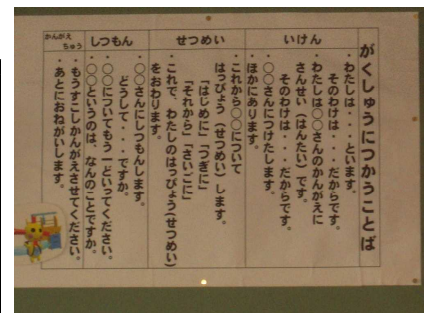 がくしゅうにつかうことば
いけん
・わたしは・・・といます。
そのわけは・・・だからです。
・わたしは〇〇さんのかんがえに
さんせい（はんたい）です。
そのわけは・・・だからです。
・〇〇さんにつけたします。
・ほかにあります。
せつめい
・これから〇〇について
はっぴょう（せつめい）します。
「はじめに」「つぎに」
「それから」「さいごに」
・これで、わたしのはっぴょう（せつめい）
をおわります。
しつもん
・〇〇さんにしつもんします。
どうして・・・ですか。
・〇〇についてもう一どいってください。
・〇〇というのは、なんのことですか。
かんがえ
ちゅう
・もうすこしかんがえさせてください。
・あとにおねがいします。